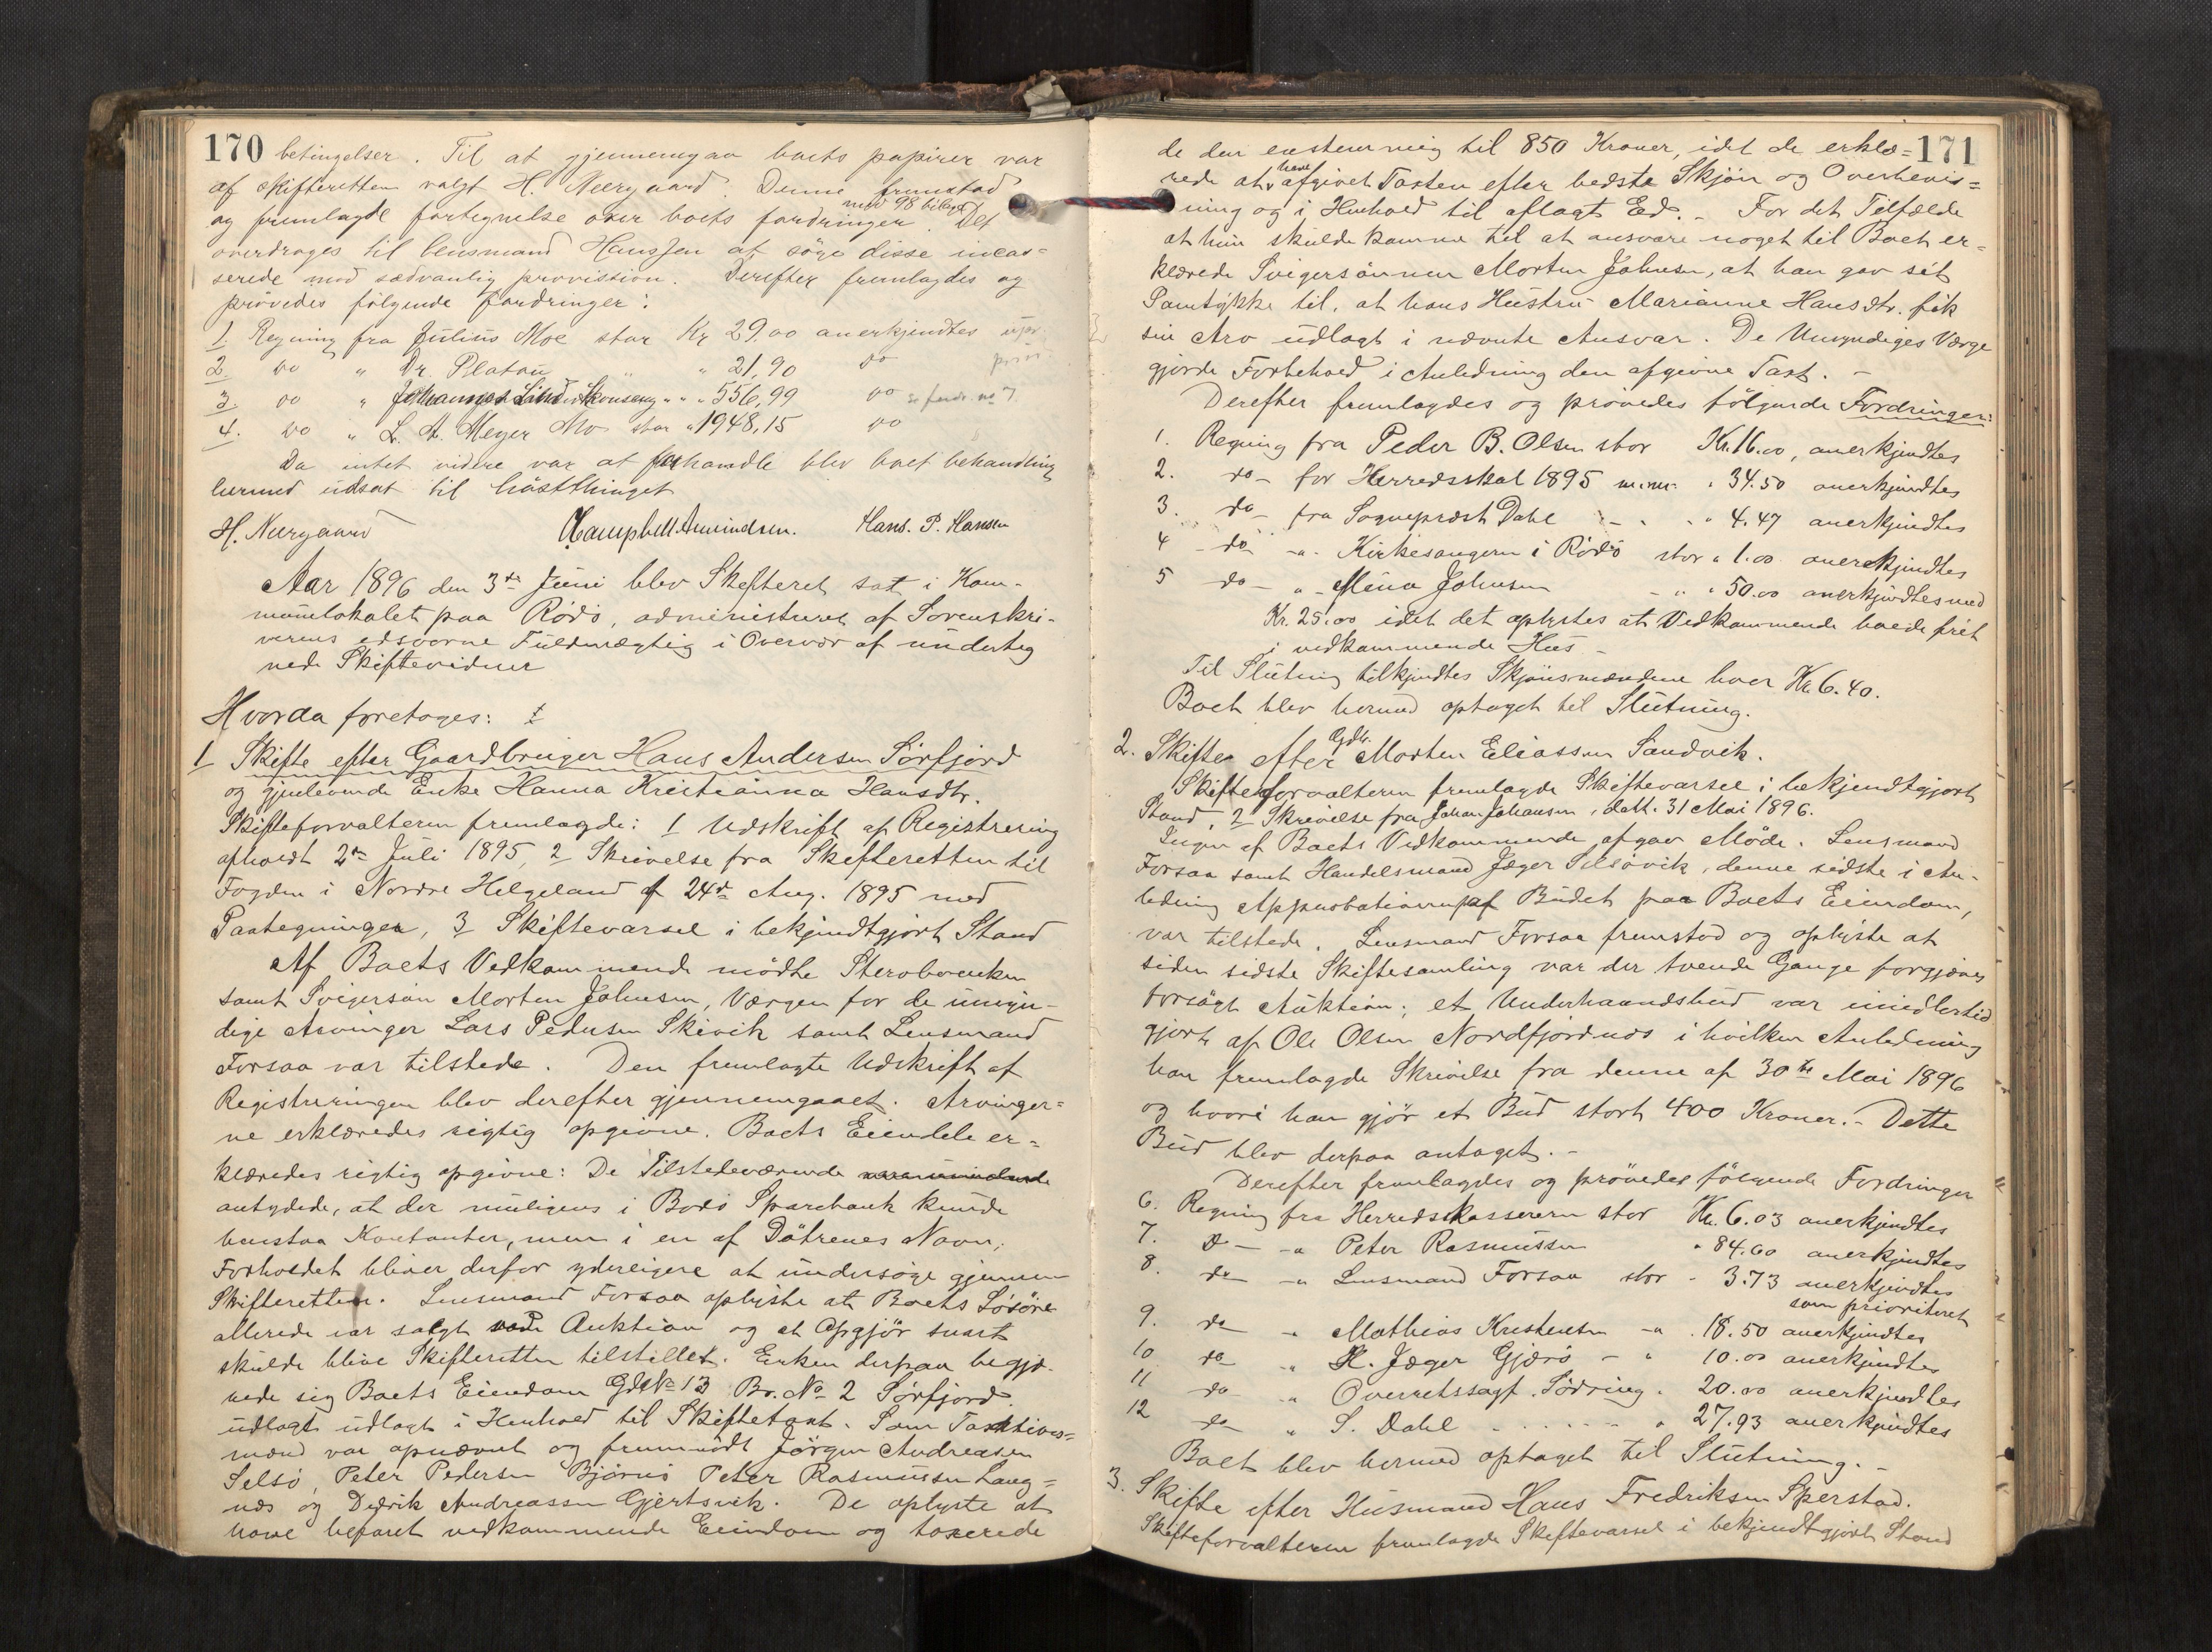 170 betingelser. Til at gjennemgaa boets papirer var
af skifteretten valgt H. Neergaard. Denne fremstod
og fremlagde fortegnelse over boets fordringer med 98 bilag. Det
overdrages til lensmand Hanssen at söge disse incas-
serede mod sædvanlig provision. Derefter fremlagdes og
prövedes fölgende fordringer:
1. Regning fra Julius Moe stor Kr 29.00 anerkjendtes upr.
2. do " Dr. Platou " " 21,90 do prior.
3. do " Johannes Lind Skonseng " " " 556,99 do se fordr. no 7
4. do " L. A. Meyer Mo stor " 1948,15 do
Da intet videre var at forhandle blev boet behandling
hermed udsat til hösttinget
H. Neergaard Campbell Amundsen. Hans. P. Hansen
Aar 1896 den 3die Juni blev Skifteret sat i Kom-
munelokalet paa Rödö, administreret af Sorenskri-
verens edsvorne Fuldmægtig i Overvær af underteg
nede Skiftevidner
Hvorda foretoges:
1 Skifte efter Gaardbruger Hans Andersen Sörfjord
og gjenlevende Enke Hanna Kristianna Hansdtr.
Skifteforvalteren fremlagde: 1 Udskrift af Registrering
afholdt 2den Juli 1895, 2 Skrivelse fra Skifteretten til
Fogden i Nordre Helgeland af 24de Aug. 1895 med
Paategninger, 3 Skiftevarsel i bekjendtgjort Stand
Af Boets Vedkommende mödte Sterboenken
samt Svigersön Morten Johnsen, Værgen for de umyn-
dige Arvinger Lars Pedersen Skivik samt Lensmand
Forsaa var tilstede. Den fremlagte Udskrift af
Registreringen blev derefter gjennemgaaet. Arvinger-
ne erklæredes rigtig opgivne. Boets Eiendele er-
klæredes rigtig opgivne: De Tilstedeværende
antydede, at der muligens i Bodö Sparebank kunde
henstaa Kontanter, men i en af Dötrenes Navn;
Forholdet bliver derfor yderligere at undersöge gjennem
Skifteretten. Lensmand Forsaa oplyste at Boets Lösöre
allerede var solgt ved Auktion og at Opgjör snart
skulde blive Skifteretten tilstillet. Enken derpaa begjæ-
rede sig Boets Eiendom Gds No 13 Br. No 2 Sörfjord
udlagt udlagt i Henhold til Skiftetaxt. Som Taxtives-
mænd var opnævnt og fremmödt Jörgen Andreasen
Selsö, Peter Pedersen Bjærnö Peter Rasmussen Lang-
næs og Didrik Andreassen Gjertsvik. De oplyste at
have befaret vedkommende Eiendom og taxerede
171
de den enstemmig til 850 Kroner, idet de erklæ-
rede at have afgivet Taxten efter bedste Skjön og Overbevis-
ning og i Henhold til aflagt Ed. - For det Tilfælde
at hun skulde komme til at ansvare noget til Boet er-
klærede Svigersönnen Morten Johnsen, at han gav sit
Samtykke til, at hans Hustru Marianne Hansdtr. fik
sin Arv udlagt i nævnte Ansvar. De Umyndiges Værge
gjorde Forbehold i Anledning den afgivne Taxt. -
Derefter fremlagdes og prövedes fölgende Fordringer:
1. Regning fra Peder B. Olsen stor Kr. 16.00, anerkjendtes
2. do - for Herredsskat 1895 m.m. " 34.50 anerkjendtes
3. do - fra Sogneprest Dahl - - " 4.47 anerkjendtes
4 - do - " - Kirkesangeren i Rödö stor " 1.00 anerkjendtes
5 do - " - Mina Johnsen - " " 50.00 anerkjendtes med
Kr. 25.00 idet det oplystes at Vedkommende boede frit
i vedkommende Hus -
Til Slutning tilkjendtes Skjönsmændene hver Kr. 6.40.
Boet blev hermed optaget til Slutning.
2. Skifte efter Gdbr. Morten Eliassen Sandvik.
Skifteforvalteren fremlagde Skiftevarsel i bekjendtgjort
Stand, 2 Skrivelse fra Johan Johansen, datt. 31 Mai 1896.
Ingen af Boets Vedkommende afgav Möde. Lensmand
Forsaa samt Handelsmand Jæger Selsövik, denne sidste i An-
ledning Approbationen af Budet paa Boets Eiendom,
var tilstede. Lensmand Forsaa fremstod og oplyste at
siden sidste Skiftesamling var der tvende Gange forgjæves
forsögt Auktion; et Underhaandsbud var imidlertid
gjort af Ole Olsen Nordfjordnæs i hvilken Anledning
han fremlagde Skrivelse fra denne af 30te Mai 1896
og hvori han gjör et Bud stort 400 Kroner. - Dette
Bud blev derpaa antaget. -
Derefter fremlagdes og prövedes fölgende Fordringer
6. Regning fra Herredskassereren stor Kr. 6.03 anerkjendtes
7. D - - " Peter Rasmussen " 84.60 anerkjendtes
8. do - " Lensmand Forsaa stor - 3.73 anerkjendtes
som prioriteret
9. do " Mathias Kristensen - " . 18.50 anerkjendtes
10 do " H. Jæger Gjærö - " 10.00 anerkjendtes
11 do " Overretssagf. Södring . 20.00 anerkjendtes
12 do " S. Dahl . . . . - " 27.93 anerkjendtes
Boet blev hermed optaget til Slutning. -
3. Skifte efter Husmand Hans Fredriksen Sperstad.
Skifteforvalteren fremlagde Skiftevarsel i bekjendtgjort Stand